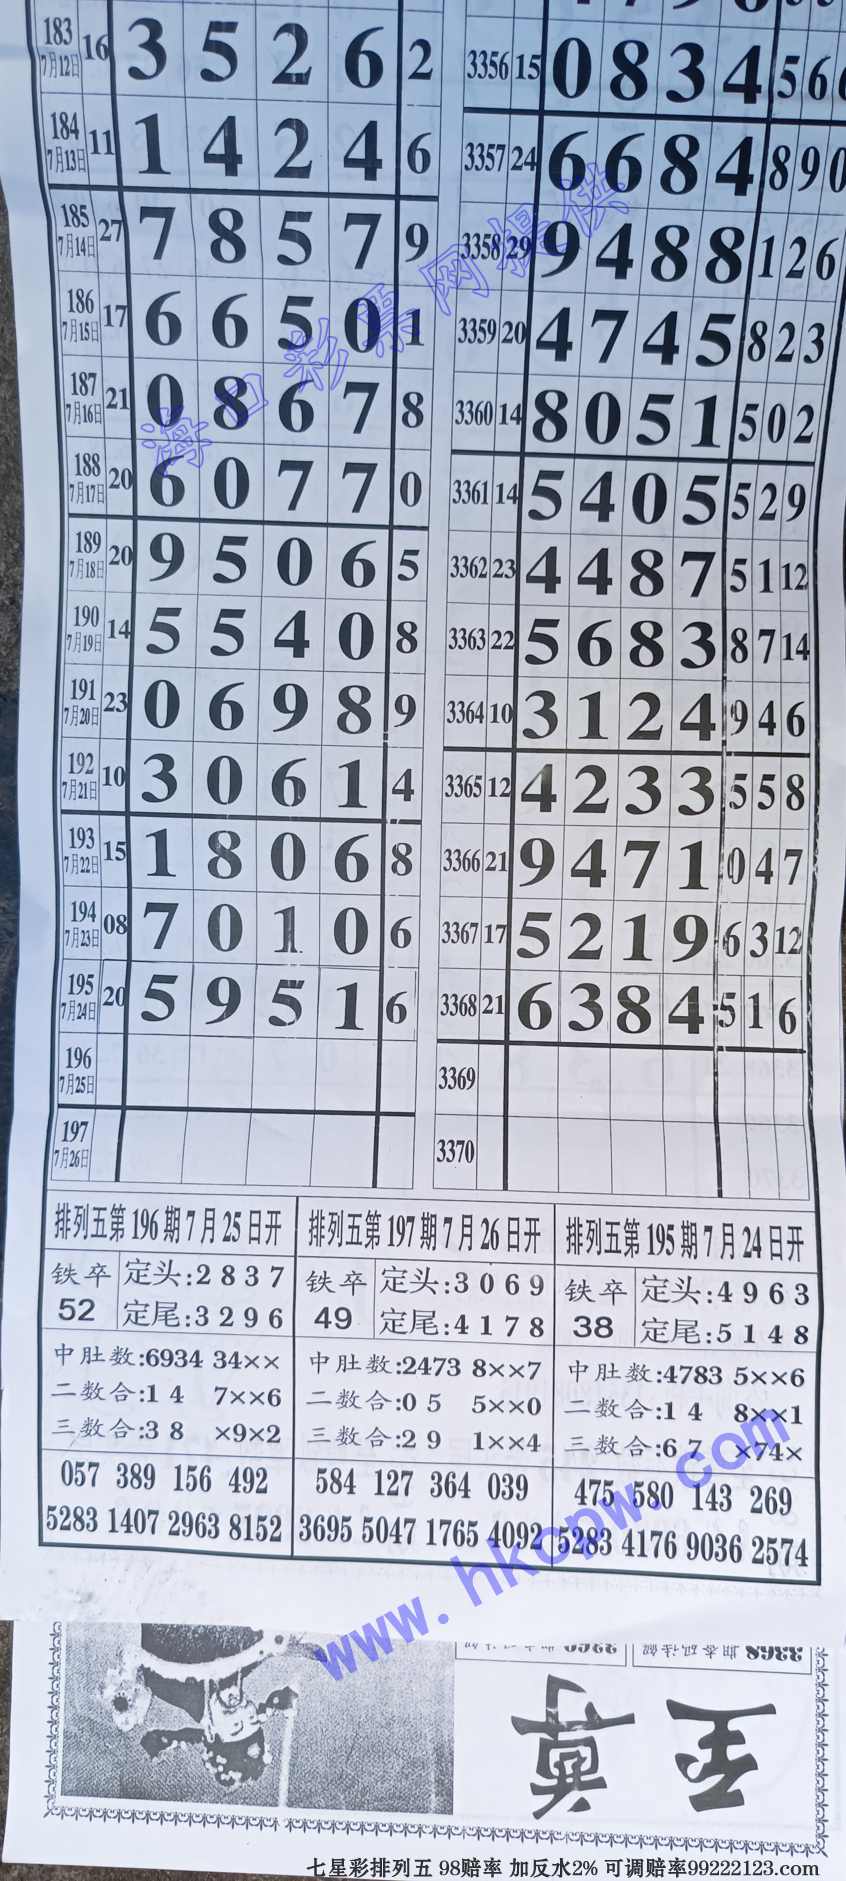 183 7月12日 16 3 5 2 6 2
3356 15 0 8 3 4 5 6 6
184 7月13日 11 1 4 2 4 6
3357 24 6 6 8 4 8 9 0
185 7月14日 27 7 8 5 7 9
3358 29 9 4 8 8 1 2 6
186 7月15日 17 6 6 5 0 1
3359 20 4 7 4 5 8 2 3
187 7月16日 21 0 8 6 7 8
3360 14 8 0 5 1 5 0 2
188 7月17日 20 6 0 7 7 0
3361 14 5 4 0 5 5 2 9
189 7月18日 20 9 5 0 6 5
3362 23 4 4 8 7 5 1 12
190 7月19日 14 5 5 4 0 8
3363 22 5 6 8 3 8 7 14
191 7月20日 23 0 6 9 8 9
3364 10 3 1 2 4 9 4 6
192 7月21日 10 3 0 6 1 4
3365 12 4 2 3 3 5 5 8
193 7月22日 15 1 8 0 6 8
3366 21 9 4 7 1 0 4 7
194 7月23日 08 7 0 1 0 6
3367 17 5 2 1 9 6 3 12
195 7月24日 20 5 9 5 1 6
3368 21 6 3 8 4 5 1 6
196 7月25日
3369
197 7月26日
3370
海口彩票网提供
排列五第196期7月25日开
铁卒 52
定头:2 8 3 7
定尾:3 2 9 6
中肚数:6934 34××
二数合:1 4 7××6
三数合:3 8 ×9×2
057 389 156 492
5283 1407 2963 8152
排列五第197期7月26日开
铁卒 49
定头:3 0 6 9
定尾:4 1 7 8
中肚数:2473 8××7
二数合:0 5 5××0
三数合:2 9 1××4
584 127 364 039
3695 5047 1765 4092
排列五第195期7月24日开
铁卒 38
定头:4 9 6 3
定尾:5 1 4 8
中肚数:4783 5××6
二数合:1 4 8××1
三数合:6 7 ×74×
475 580 143 269
5283 4176 9036 2574
www.hkcpw.com
3368
至尊
七星彩排列五 98赔率 加反水2% 可调赔率99222123.com